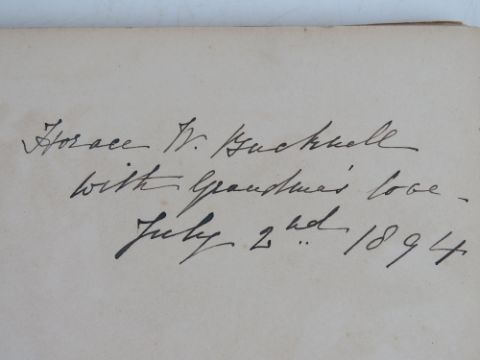 Horace W. Bucknell
with Grandma's love -
July 2nd 1894